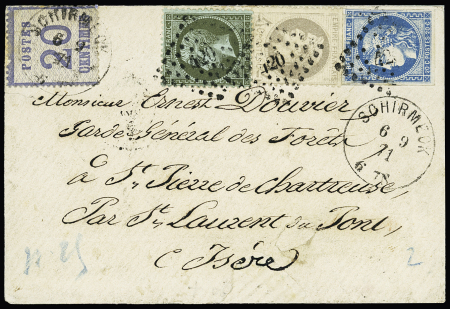 POSTES
20
CENTIMES
SCHIRMECK
6 9
71
Monsieur Ernest Douvier
Garde Général des Forêts
à St Pierre de Chartreuse
Par St Laurent du Pont
Isère
SCHIRMECK
6 9
71
2